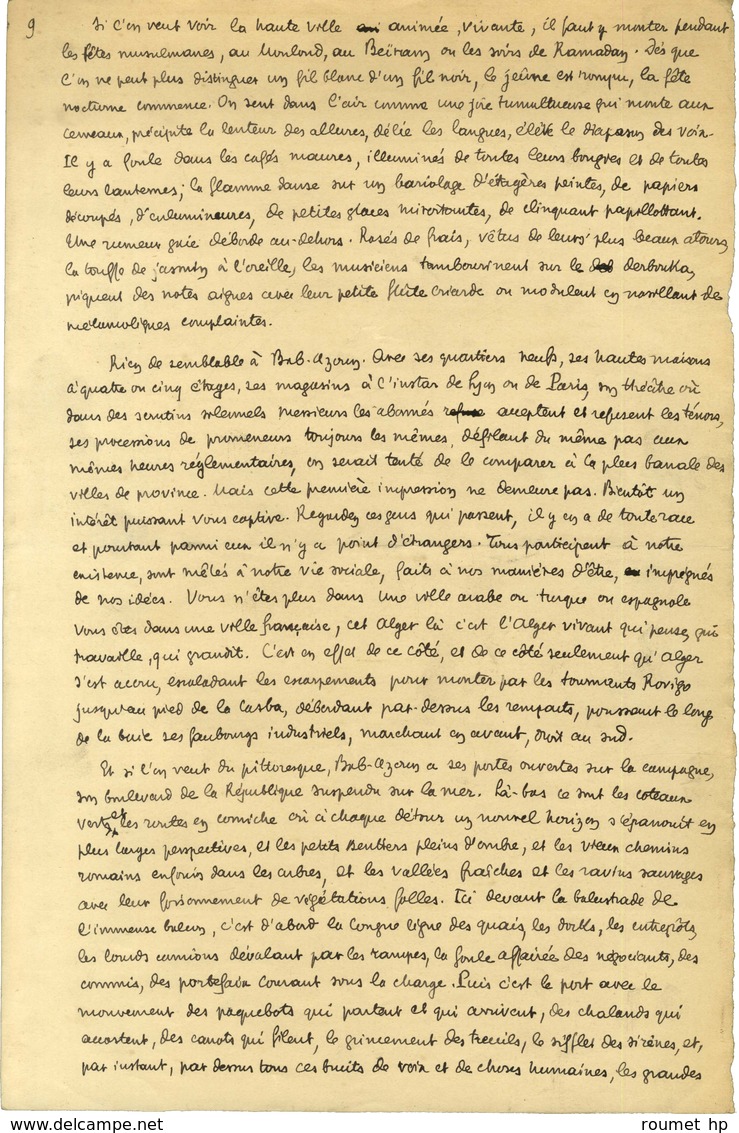 9
Si l'on veut voir la haute ville animée, vivante, il faut y monter pendant
les fêtes musulmanes, au Mouloud, au Beïram ou les soirs de Ramadan. Dès que
l'on ne peut plus distinguer un fil blanc d'un fil noir, le jeûne est rompu, la fête
nocturne commence. On sent dans l'air comme une joie tumultueuse qui monte aux
cerveaux, précipite la lenteur des allures, délie les langues, élève le diapason des voix.
Il y a foule dans les cafés maures, illuminés de toutes leurs bougies et de toutes
leurs lanternes; la flamme danse sur un bariolage d'étagères peintes, de papiers
découpés, d'enluminures, de petites glaces miroitantes, de clinquant papillottant.
Une rumeur gaie déborde au-dehors. Rasés de frais, vêtus de leurs plus beaux atours,
la touffe de jasmin à l'oreille, les musiciens tambourinent sur le derbouka,
piquent des notes aigues avec leur petite flûte criarde ou modulent en nasillant de
mélancoliques complaintes.
Rien de semblable à Bab-Azoun. Avec ses quartiers neufs, ses hautes maisons
à quatre ou cinq étages, ses magasins à l'instar de Lyon ou de Paris, son théâtre où
dans des scrutins solennels messieurs les abonnés acceptent et refusent les ténors,
ses processions de promeneurs toujours les mêmes, défilant du même pas aux
mêmes heures réglementaires, on serait tenté de le comparer à la plus banale des
villes de province. Mais cette première impression ne demeure pas. Bientôt un
intérêt puissant vous captive. Regardez ces gens qui passent, il y en a de toute race
et pourtant parmi eux il n'y a point d'étrangers. Tous participent à notre
existence, sont mêlés à notre vie sociale, faits à nos manières d'être, imprégnés
de nos idées. Vous n'êtes plus dans une ville arabe ou turque ou espagnole
vous êtes dans une ville française, cet Alger là c'est l'Alger vivant qui pense, qui
travaille, qui grandit. C'est en effet de ce côté, et de ce côté seulement qu'Alger
s'est accru, escaladant les escarpements pour monter par les tournants Rovigo
jusqu'au pied de la Casba, débordant par-dessus les remparts, poussant le long
de la baie ses faubourgs industriels, marchant en avant, droit au sud.
Et si l'on veut du pittoresque, Bab-Azoun a ses portes ouvertes sur la campagne,
son boulevard de la République suspendu sur la mer. Là-bas ce sont les coteaux
verts, et les routes en corniche où à chaque détour un nouvel horizon s'épanouit en
plus larges perspectives, et les petits sentiers pleins d'ombre, et les vieux chemins
romains enfouis dans les arbres, et les vallées fraîches et les ravins sauvages
avec leur foisonnement de végétations folles. Ici devant la balustrade de
l'immense balcon, c'est d'abord la longue ligne des quais, les docks, les entrepôts,
les lourds camions dévalant par les rampes, la foule affairée des négociants, des
commis, des portefaix courant sous la charge. Puis c'est le port avec le
mouvement des paquebots qui partent et qui arrivent, des chalands qui
accostent, des canots qui filent, le grincement des treuils, le sifflet des sirènes, et,
par instant, par dessus tous ces bruits de voix et de choses humaines, les grandes
roumet hp